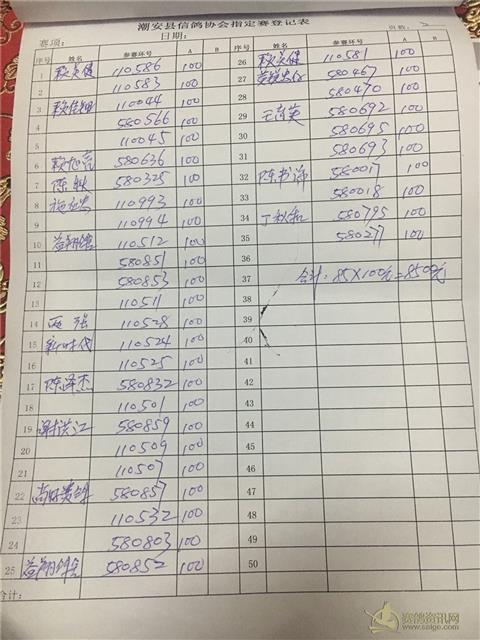 潮安县信鸽协会指定赛登记表
赛项： 日期： 页数：2
序号 姓名 参赛环号 A B 序号 姓名 参赛环号 A B
1 110586 100 26 110581 100
2 110583 100 27 580467 100
3 110044 100 28 580470 100
4 580566 100 29 580692 100
5 110045 100 30 580695 100
6 580636 100 31 580693 100
7 580325 100 32 陈书沛 580017 100
8 110993 100 33 580018 100
9 110994 100 34 丁秋和 580795 100
10 110512 100 35 580277 100
11 580851 100 36
12 580853 100 37 合计：85×100元=8500元
13 110511 100 38
14 110528 100 39
15 新时代 110524 100 40
16 110525 100 41
17 陈泽杰 580832 100 42
18 110501 100 43
19 谢洪江 580859 100 44
20 110509 100 45
21 110507 100 46
22 580857 100 47
23 110532 100 48
24 580803 100 49
25 580852 100 50
合计：
赛鸽资讯网
www.saige.com